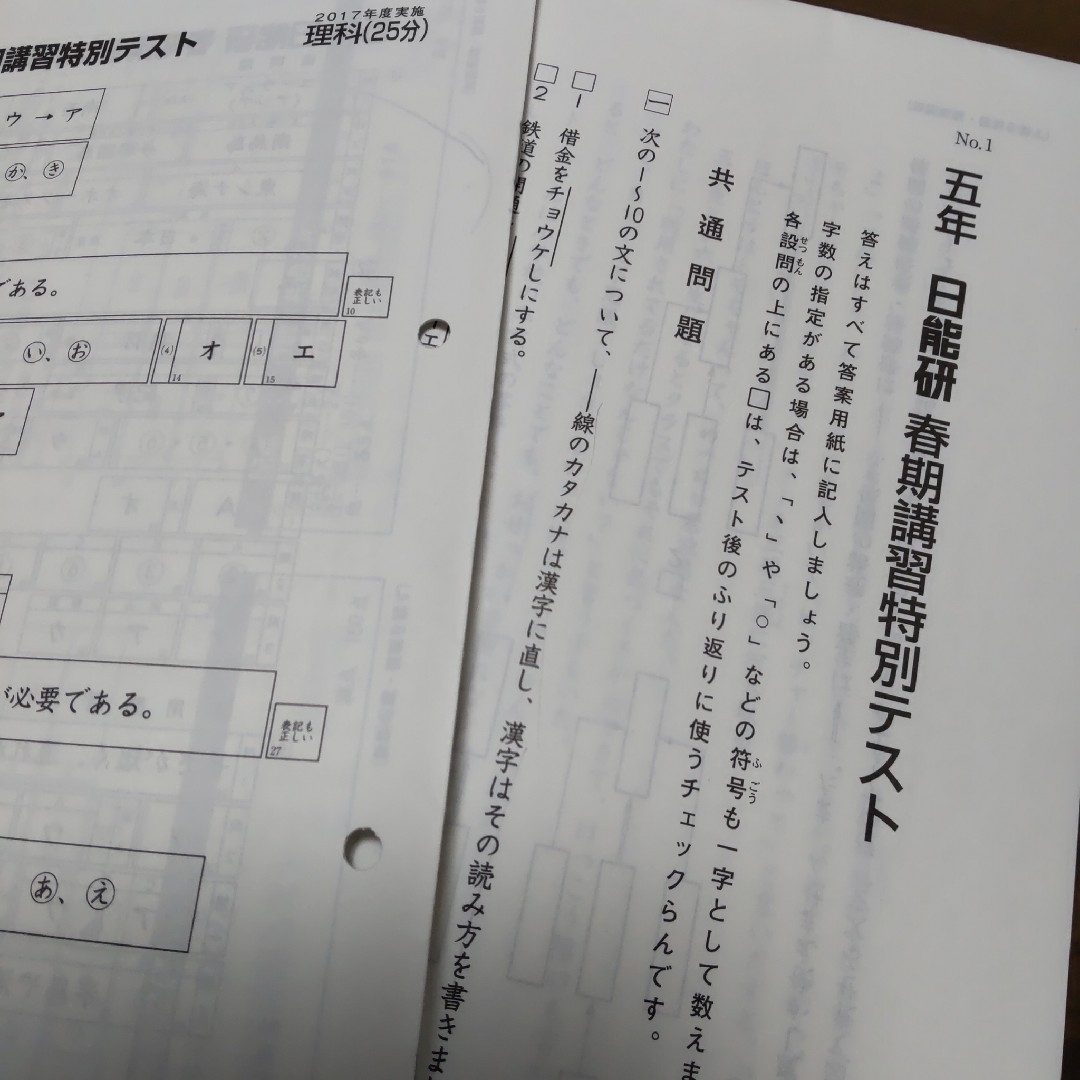 講習特別テスト
2017年度実施
理科(25分)
ウ → ア
か、き
である。
表記も正しい
10
い、お
(4) オ
14
(5) エ
15
が必要である。
表記も正しい
27
あ、え
No.1
五年 日能研 春期講習特別テスト
答えはすべて答案用紙に記入しましょう。
字数の指定がある場合は、「、」や「。」などの符号も一字として数えま
ふごう
各設問の上にある□は、テスト後のふり返りに使うチェックらんです。
せつもん
共通問題
一 次の1〜10の文について、――線のカタカナは漢字に直し、漢字はその読み方を書きま
□1 借金をチョウケしにする。
□2 鉄道の開通
エ